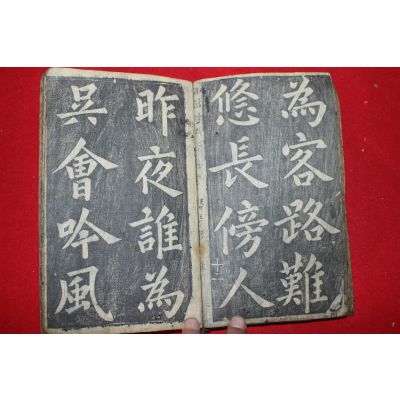 為客路難
悠長傍人
十二
昨夜誰為
吳會吟風